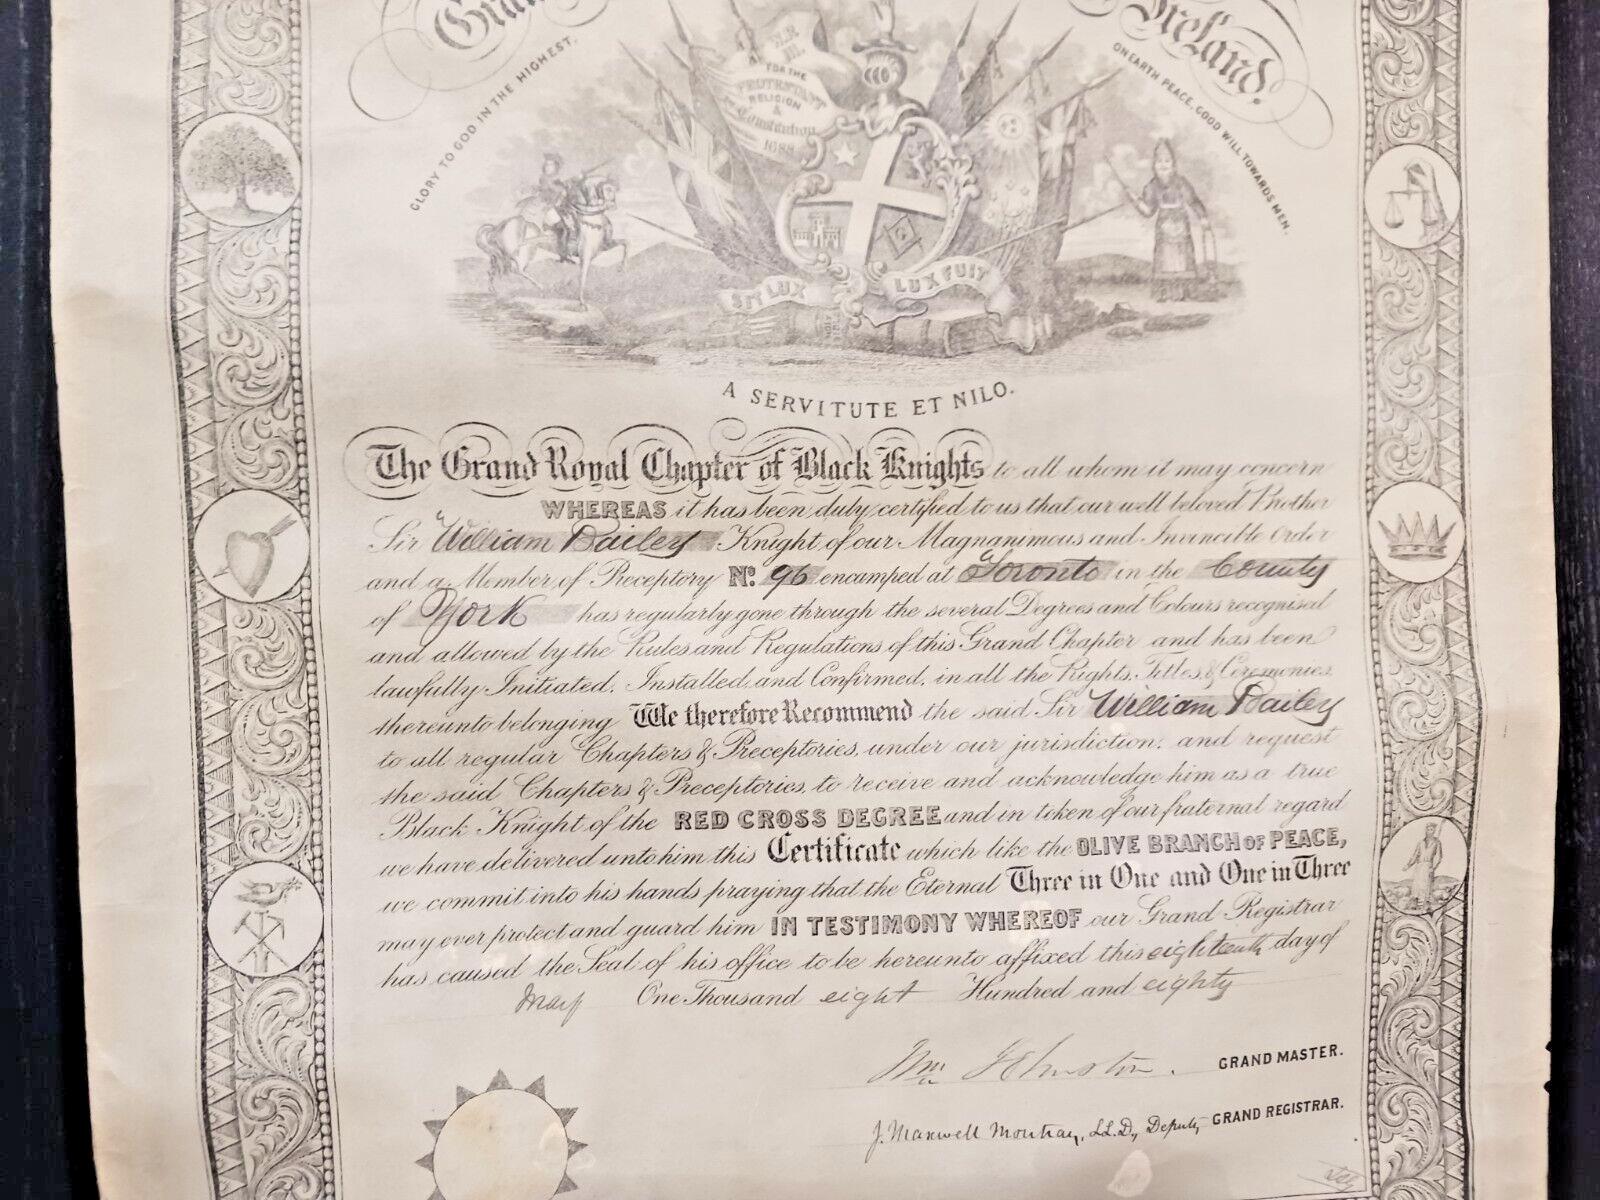 Gran
Ireland.
GLORY TO GOD IN THE HIGHEST.
ON EARTH PEACE, GOOD WILL TOWARDS MEN.
FOR THE
PROTESTANT
RELIGION
&
Constitution
1688
G
SIT LUX
LUX FUIT
A SERVITUTE ET NILO.
The Grand Royal Chapter of Black Knights to all whom it may concern
WHEREAS it has been duly certified to us that our well beloved Brother
Sir William Bailey Knight of our Magnanimous and Invincible Order
and a Member of Preceptory No. 96 encamped at Toronto in the County
of York has regularly gone through the several Degrees and Colours recognised
and allowed by the Rules and Regulations of this Grand Chapter and has been
lawfully Initiated, Installed, and Confirmed, in all the Rights, Titles, & Ceremonies
thereunto belonging We therefore Recommend the said Sir William Bailey
to all regular Chapters & Preceptories, under our jurisdiction: and request
the said Chapters & Preceptories, to receive and acknowledge him as a true
Black Knight of the RED CROSS DEGREE and in token of our fraternal regard
we have delivered unto him this Certificate which like the OLIVE BRANCH OF PEACE,
we commit into his hands praying that the Eternal Three in One and One in Three
may ever protect and guard him IN TESTIMONY WHEREOF our Grand Registrar
has caused the Seal of his office to be hereunto affixed this eighteenth day of
May One Thousand eight Hundred and eighty
Wm Johnston. GRAND MASTER.
J. Maxwell LL.D, Deputy GRAND REGISTRAR.